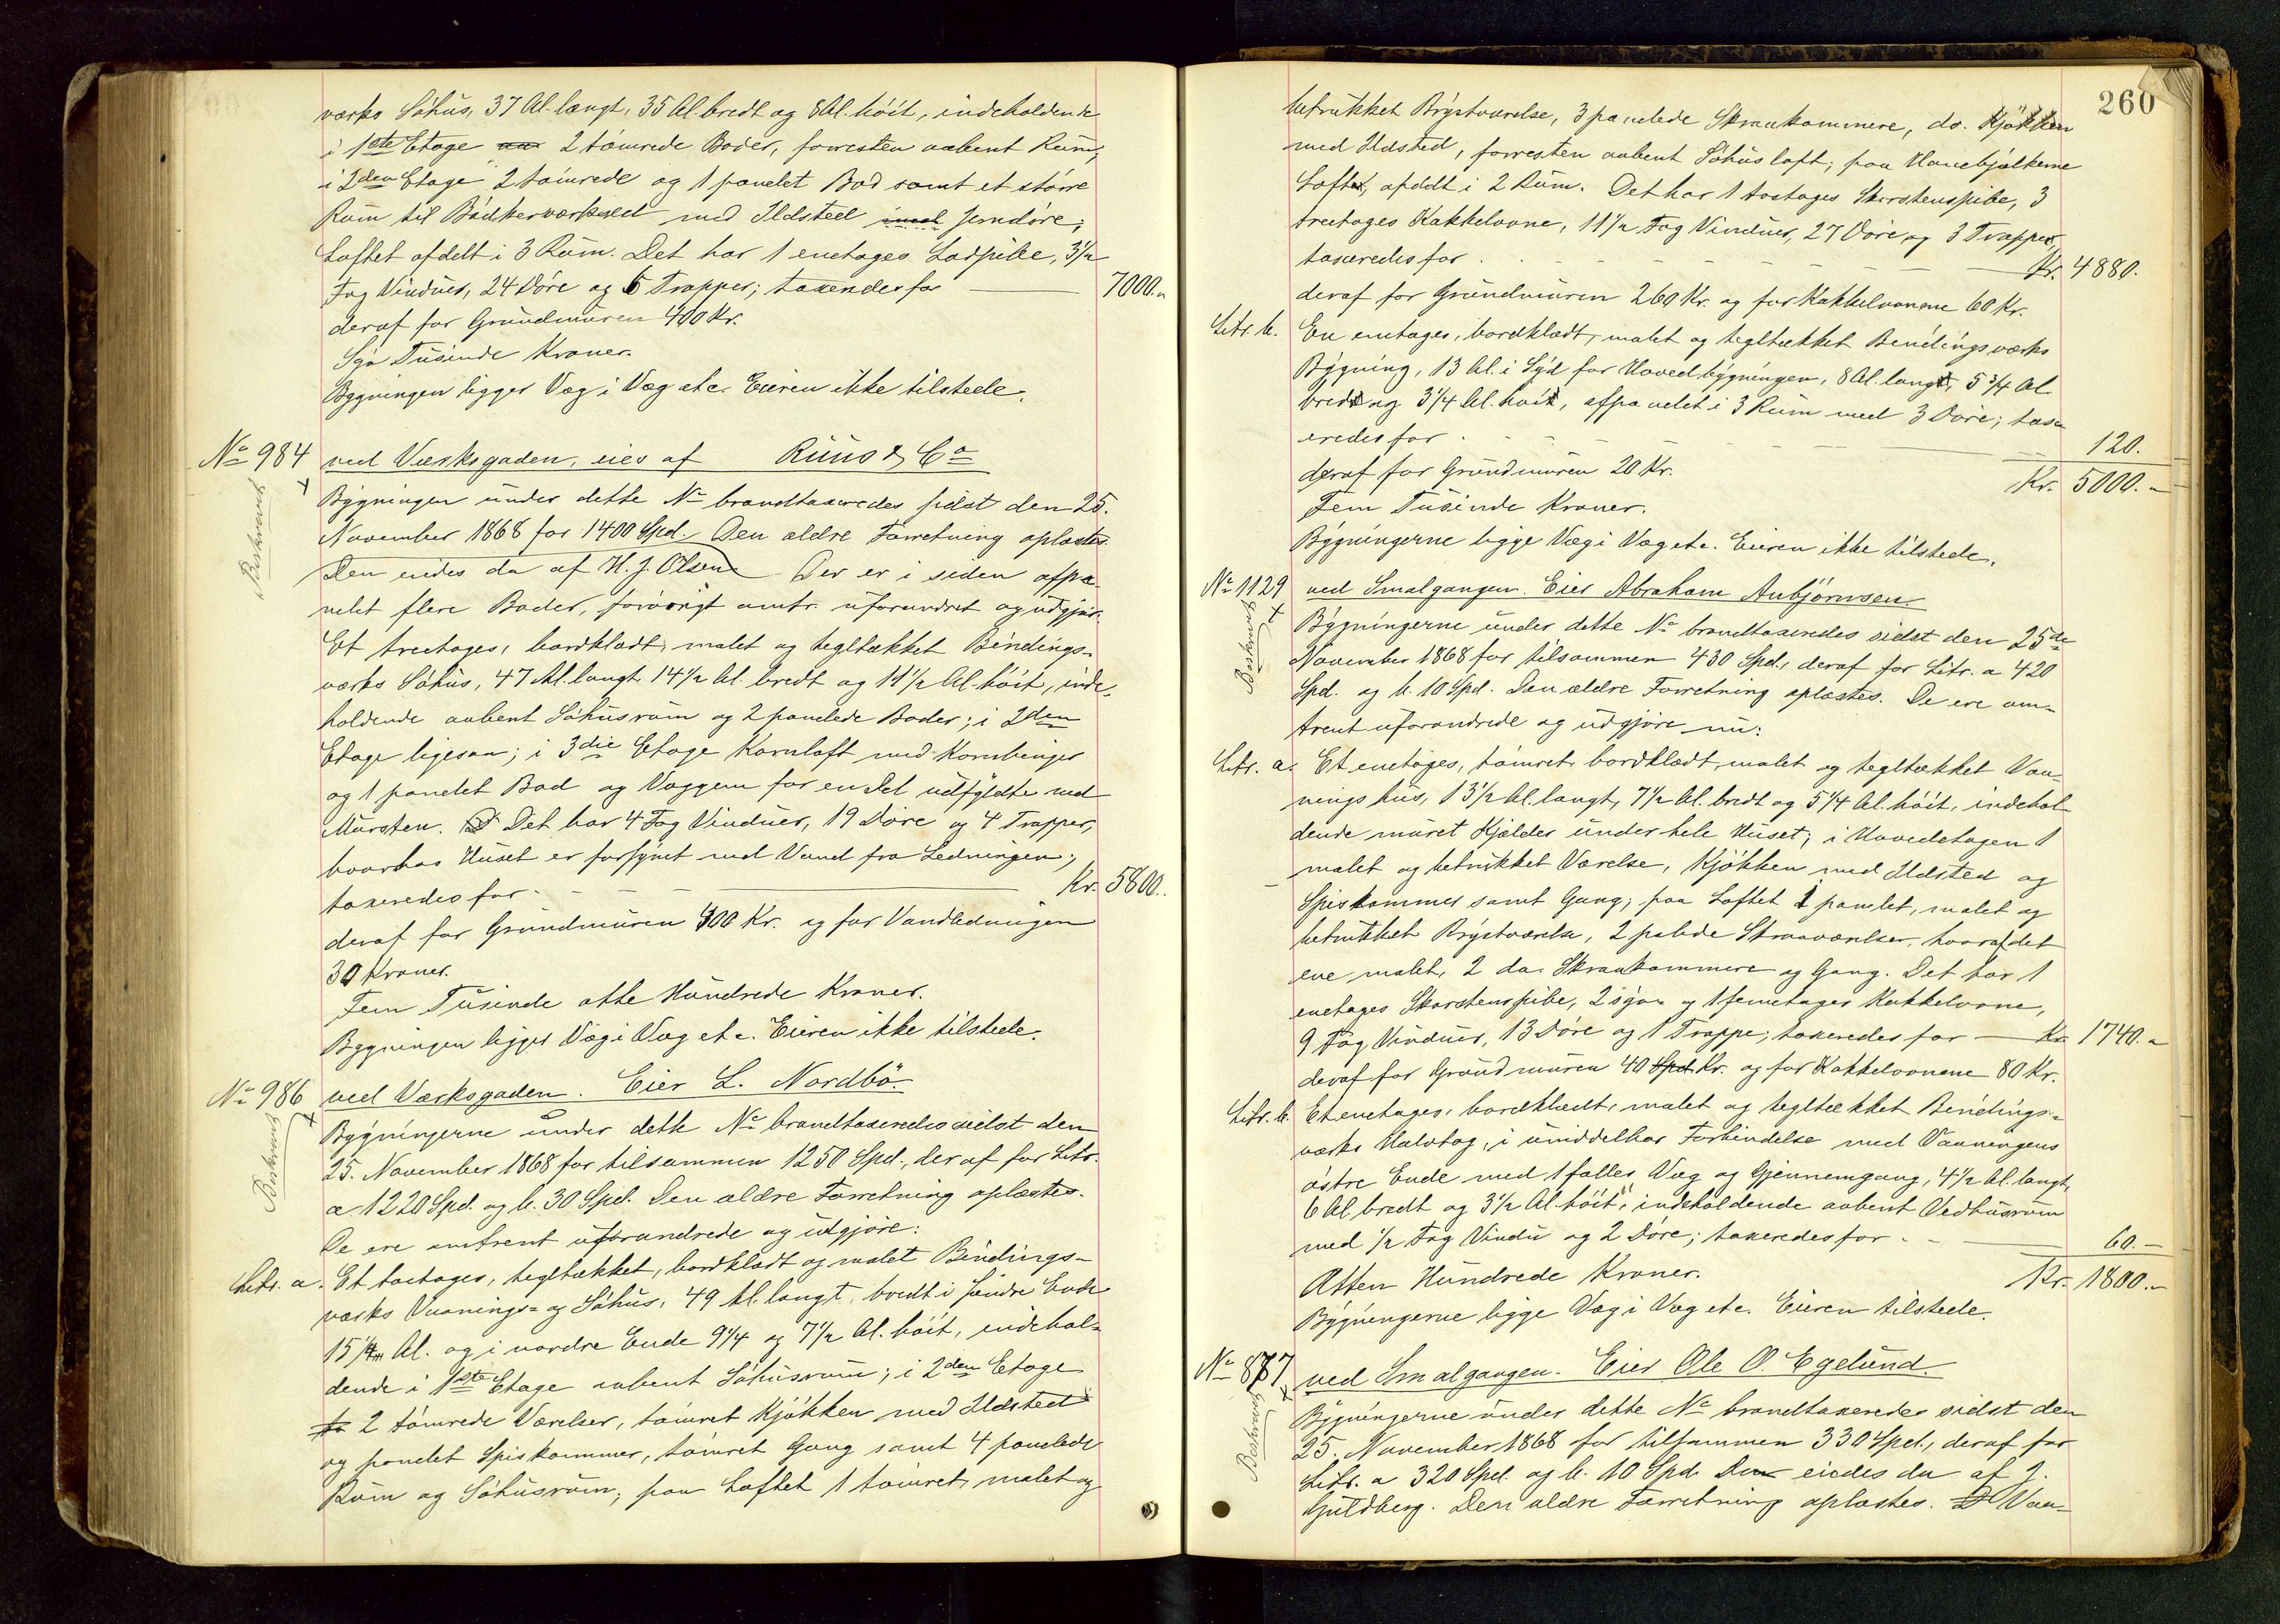 værks Söhus, 37 Al. langt, 35 Al. bredt og 8 Al. höit, indeholdende
i 1ste Etage 2 tömrede Boder, forresten aabent Rum,
i 2den Etage 2 tömrede og 1 panelet Bod samt et större
Rum til Bödkerværksted med Ildsted Jerndöre;
Loftet afdelt i 3 Rum. Det har 1 enetages Ladpibe, 3 1/2
Fag Vinduer, 24 Döre og 6 Trapper; taxeredes for 7000.-
deraf for Grundmuren 400 Kr.
Syv Tusinde Kroner.
Bygningen ligger Væg i Væg etc. Eieren ikke tilstede.
No 984 ved Værksgaden, eies af Ruus & Co
Beskrevet
Bygningen under dette No brandtaxeredes sidst den 25.
November 1868 for 1400 Spd. Den ældre Forretning oplæstes.
Den eiedes da af H. J. Olsen. Der er i siden afpa-
nelet flere Boder, forövrigt omtr. uforandret og udgjör.
Et treetages, bordklædt, malet og tegltækket Bindings-
værks Söhus, 47 Al. langt, 14 1/2 Al. bredt og 11 1/2 Al. höit, inde-
holdende aabent Söhusrum og 2 panelede Boder; i 2den
Etage ligesaa; i 3die Etage Kornloft med Kornbinger
og 1 panelet Bod og Væggene for en Del udfyldte med
Mursten. Det har 4 Fag Vinduer, 19 Döre og 4 Trapper,
hvorhos Huset er forsynet med Vand fra Ledningen;
taxeredes for Kr. 5800.
deraf for Grundmuren 400 Kr. og for Vandledningen
30 Kroner.
Fem Tusinde otte Hundrede Kroner.
Bygningen ligger Væg i Væg etc. Eieren ikke tilstede.
No 986 ved Værksgaden. Eier L. Nordbö.
Beskrevet
Bygningerne under dette No brandtaxeredes sidst den
25. November 1868 for tilsammen 1250 Spd., deraf for Litr.
a. 1220 Spd. og b. 30 Spd. Den ældre Forretning oplæstes.
De ere omtrent uforandrede og udgjöre:
Litr. a. Et toetages, tegltækket, bordklædt og malet Bindings-
værks Vaanings- og Söhus, 49 Al. langt, bredt i söndre Ende
15 1/4 Al. og i nordre Ende 9 1/4 og 7 1/2 Al. höit, indehol-
dende i 1ste Etage aabent Söhusrum; i 2den Etage
2 tömrede Værelser, tömret Kjökken med Ildsted
og panelet Spiskammer, tömret Gang samt 4 panelede
Rum og Söhusrum; paa Loftet 1 tömret, malet og
260
betrukket Brystværelse, 3 panelede Skraakammere, do. Kjökken
med Ildsted, forresten aabent Söhusloft; paa Hanebjælkerne
Loftet, afdelt i 2 Rum. Det har 1 toetages Skorstenspibe, 3
treetages Kakkelovne, 11 1/2 Fag Vinduer, 27 Döre og 3 Trapper,
taxeredes for Kr. 4880.
deraf for Grundmuren 260 Kr. og for Kakkelovnene 60 Kr.
Litr. b. En enetages, bordklædt, malet og tegltækket Bindingsværks
Bygning, 13 Al. i Syd for Hovedbygningen, 8 Al. lang, 5 3/4 Al.
bred og 3 1/4 Al. höi, afpanelet i 3 Rum med 3 Döre; tax-
eredes for 120.
deraf for Grundmuren 20 Kr. Kr. 5000.-
Fem Tusinde Kroner.
Bygningerne ligge Væg i Væg etc. Eieren ikke tilstede.
No 1129 ved Smalgangen. Eier Abraham Anbjörnsen.
Beskrevet
Bygningerne under dette No brandtaxeredes sidst den 25de
November 1868 for tilsammen 430 Spd., deraf for Litr. a 420
Spd. og b. 10 Spd. Den ældre Forretning oplæstes. De ere om-
trent uforandrede og udgjöre nu:
Litr. a. Et enetages, tömret, bordklædt, malet og tegltækket Vaa-
ningshus, 13 1/2 Al. langt, 7 1/2 Al. bredt og 5 1/4 Al. höit, indehol-
dende muret Kjælder under hele Huset; i Hovedetagen 1
malet og betrukket Værelse, Kjökken med Ildsted og
Spiskammer samt Gang; paa Loftet 1 panelet, malet og
betrukket Brystværelse, 2 palede Skraaværelser, hvoraf det
ene malet, 2 do. Skraakammere og Gang. Det har 1
enetages Skorstenspibe, 2 syv- og 1 femetages Kakkelovne,
9 Fag Vinduer, 13 Döre og 1 Trappe; taxeredes for Kr. 1740.-
deraf for Grundmuren 40 Spd. Kr. og for Kakkelovnene 80 Kr.
Litr. b. Et enetages, bordklædt, malet og tegltækket Bindings-
værks Halvtag, i umiddelbar Forbindelse med Vaaningens
östre Ende med 1 fælles Væg og Gjennemgang, 4 1/2 Al. langt,
6 Al. bredt og 3 1/2 Al. höit, indeholdende aabent Vedhusrum
med 1/2 Fag Vindu og 2 Döre; taxeredes for 60.-
Atten Hundrede Kroner. Kr. 1800.-
Bygningerne ligge Væg i Væg etc. Eieren tilstede.
No 877 ved Smalgangen. Eier Ole O. Egelund.
Beskrevet
Bygningerne under dette No brandtaxeredes sidst den
25. November 1868 for tilsammen 330 Spd., deraf for
Litr. a 320 Spd. og b. 10 Spd. De eiedes da af J.
Guldberg. Den ældre Forretning oplæstes. Vaa-